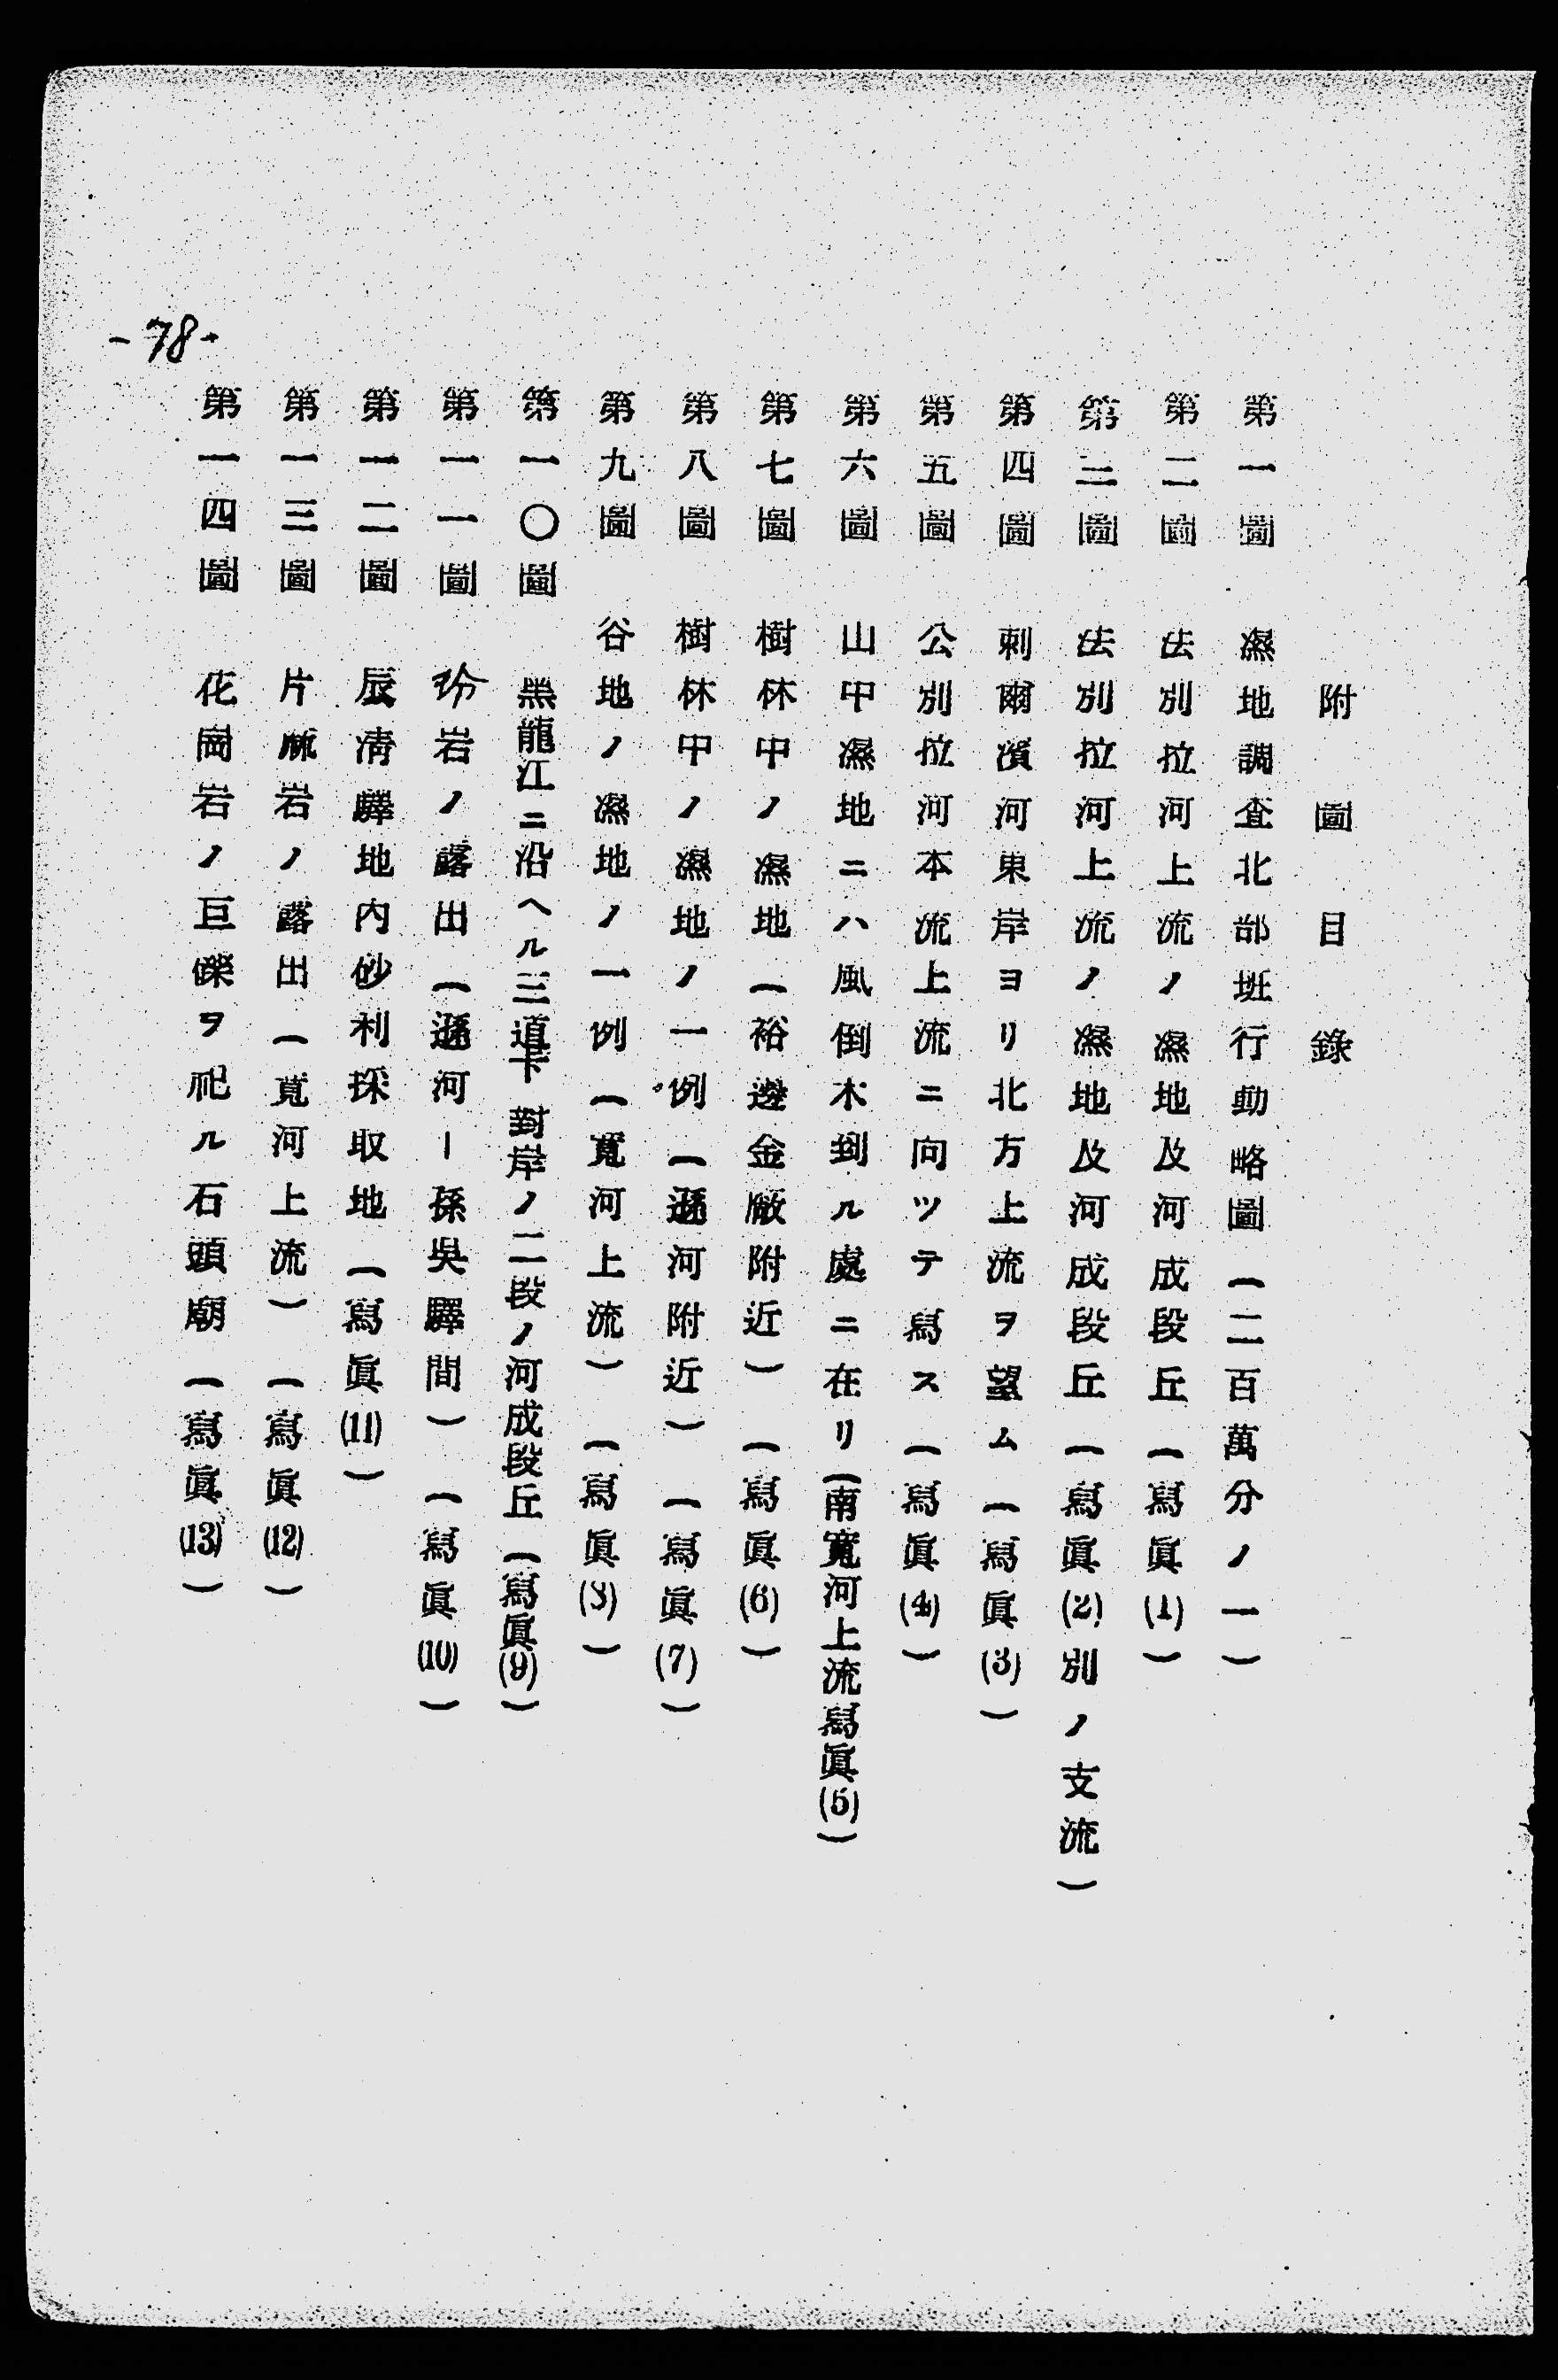 附圖目錄
第一圖 濕地調査北部班行動略圖(二百萬分ノ一)
第二圖 法別拉河上流ノ濕地及河成段丘(寫眞(1))
第三圖 法別拉河上流ノ濕地及河成段丘(寫眞(2)別ノ支流)
第四圖 剌爾濱河東岸ヨリ北方上流ヲ望ム(寫眞(3))
第五圖 公別拉河本流上流ニ向ツテ寫ス(寫眞(4))
第六圖 山中濕地ニハ風倒木到ル處ニ在リ(南寬河上流寫眞(5))
第七圖 樹林中ノ濕地(裕邊金廠附近)(寫眞(6))
第八圖 樹林中ノ濕地ノ一例(遜河附近)(寫眞(7))
第九圖 谷地ノ濕地ノ一例(寬河上流)(寫眞(8))
第一〇圖 黑龍江ニ沿ヘル三道卡對岸ノ二段ノ河成段丘(寫眞(9))
第一一圖 玢岩ノ露出(遜河ー孫吳驛間)(寫眞(10))
第一二圖 辰淸驛地內砂利採取地(寫眞(11))
第一三圖 片麻岩ノ露出(寬河上流)(寫眞(12))
第一四圖 花崗岩ノ巨礫ヲ祀ル石頭廟(寫眞(13))
-78-